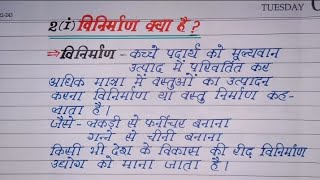 TUESDAY
2(i) विनिर्माण क्या है ?
⇒ विनिर्माण - कच्चे पदार्थ को मूल्यवान
उत्पाद में परिवर्तित कर
अधिक मात्रा में वस्तुओं का उत्पादन
करना विनिर्माण या वस्तु निर्माण कह-
लाता है।
जैसे - लकड़ी से फर्नीचर बनाना
गन्ने से चीनी बनाना
किसी भी देश के विकास की रीढ़ विनिर्माण
उद्योग को माना जाता है।